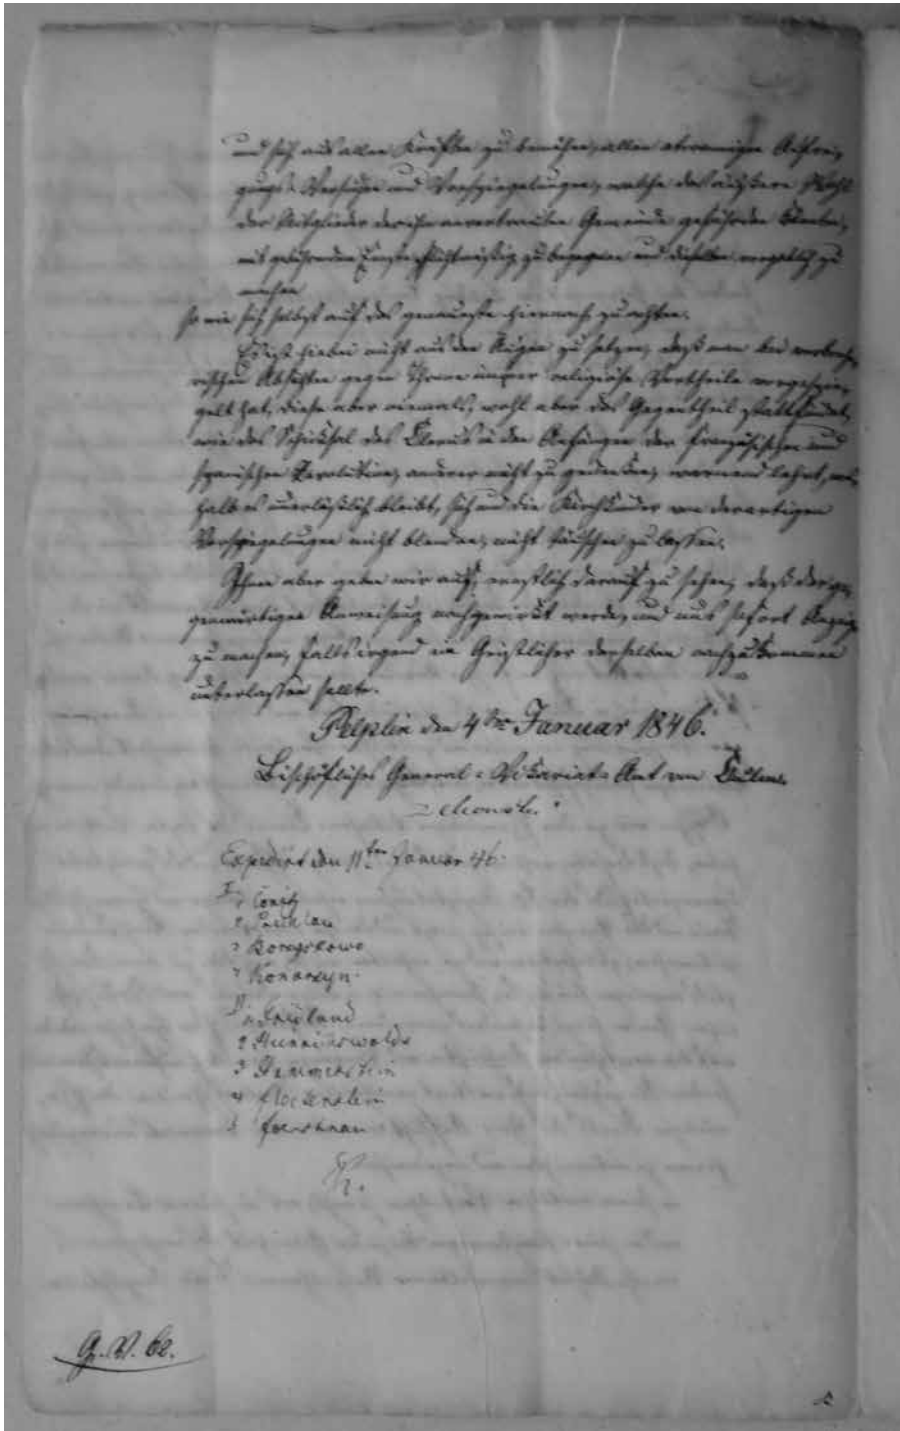 und sich aus allen Kräften zu bemühen, allen etwanigen Aufrei-
gungs-Versuchen und Vorspiegelungen, welche das äußere Wohl
der Mitglieder der ihm anvertrauten Gemeinde gefährden könnten,
mit gebührendem Ernste pflichtmäßig zu begegnen und dieselben vergeblich zu
machen
so wie sich selbst auf das genaueste hiernach zu achten.
Es ist hiebei nicht aus den Augen zu setzen, daß man bei verbreche-
rischen Absichten gegen Throne immer religiöse Vortheile vorgespie-
gelt hat, diese aber niemals, wohl aber das Gegentheil stattfindet,
wie das Schicksal des Clerus in den Anfängen der französischen und
spanischen Revolution, anderer nicht zu gedenken, warnend lehrt, wes-
halb es unerläßlich bleibt, sich und die Kirchkinder von derartigen
Vorspiegelungen nicht blenden, nicht täuschen zu lassen.
Ihnen aber geben wir auf, ernstlich darauf zu sehen, daß der ge-
genwärtigen Anweisung nachgewirkt werde, und uns sofort Anzeige
zu machen, falls irgend ein Geistlicher derselben nachzukommen
unterlassen sollte.
Pelplin den 4ten Januar 1846.
Bischöfliches General-Vikariat-Amt von Culm.
Expedirt den 11ten Januar 46.
I
1 Conitz
3 Borzyskowo
4 Konarzyn
II.
1 Friedland
3 Hammerstein
4 Flötenstein
5 Foerstnau
G. V. 62.